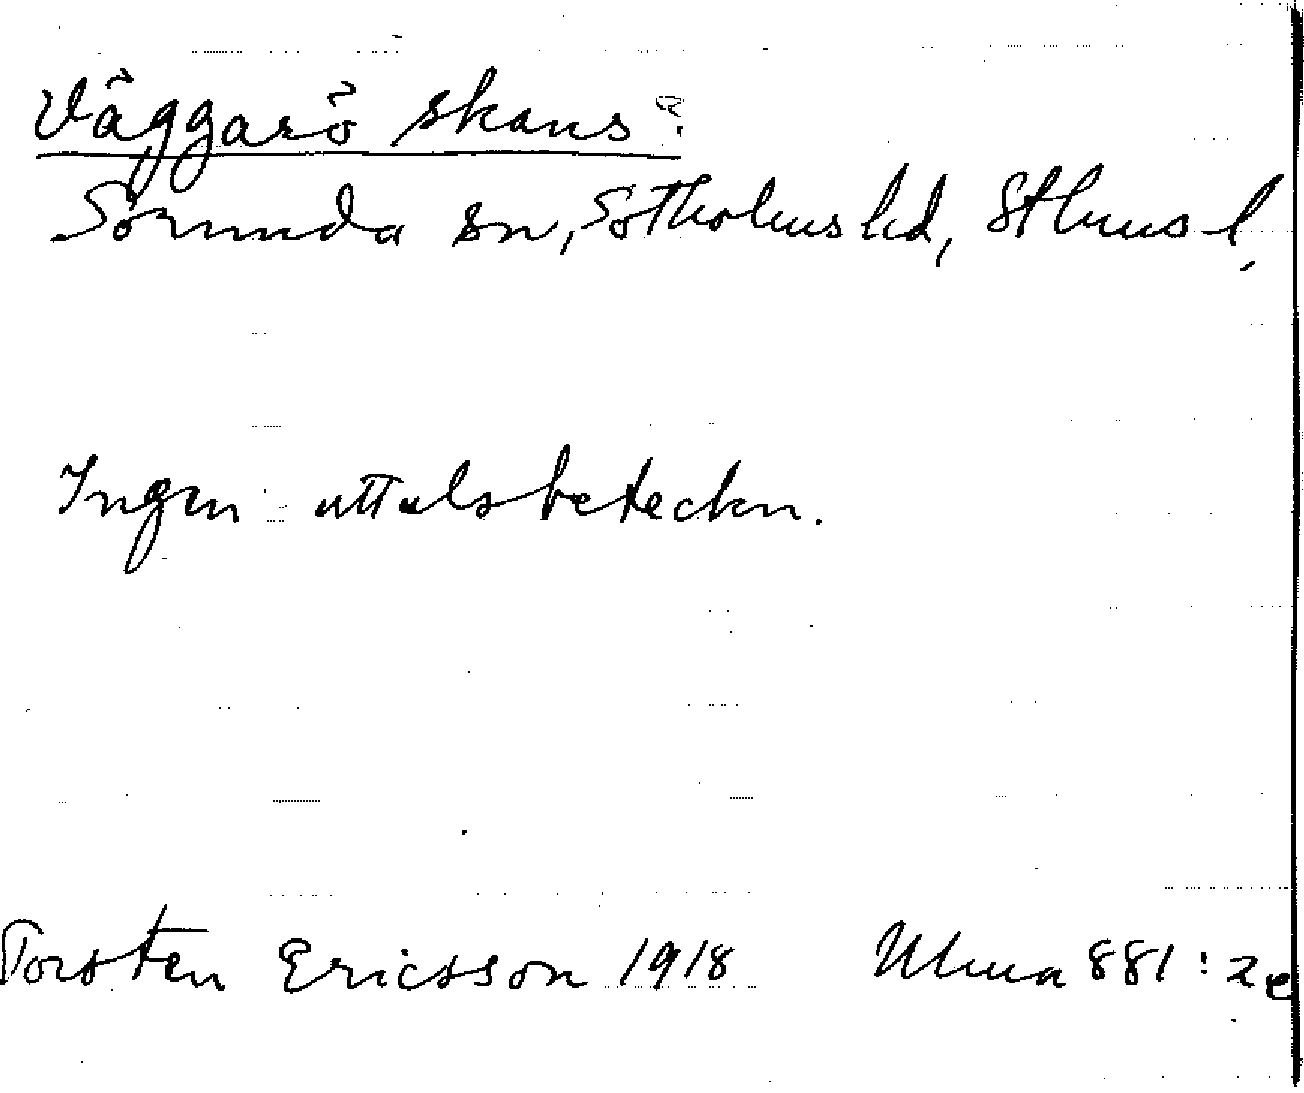 Väggarö skans?
Sorunda sn, Sotholms hd, Sthms l,
Ingen uttalsbeteckn.
Torsten Ericsson 1918 Ulma 881:2e